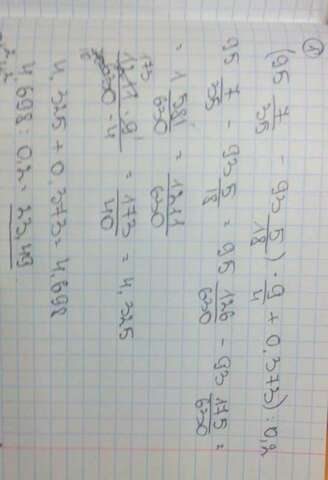 ① (95 7/35 - 93 5/18) · 9/4 + 0,373) : 0,2
95 7/35 - 93 5/18 = 95 126/630 - 93 175/630 =
= 1 581/630 = 1211/630
173
1211 · 9/630 · 4 = 173/40 = 4,325
4,325 + 0,373 = 4,698
4,698 : 0,2 = 23,49